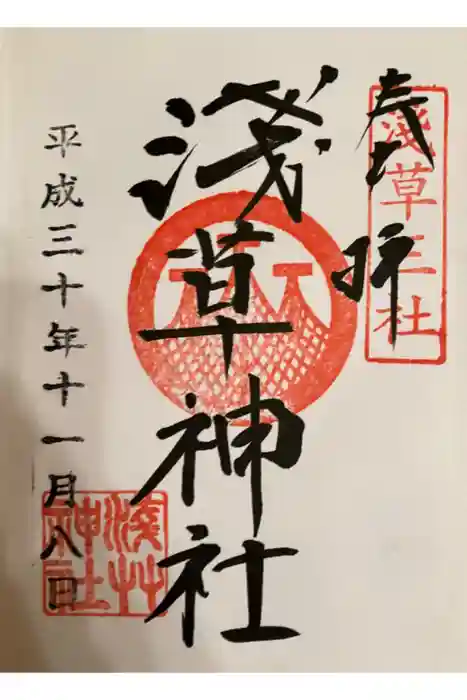 奉拝
淺草三社
淺草神社
平成三十年十一月八日
淺草神社